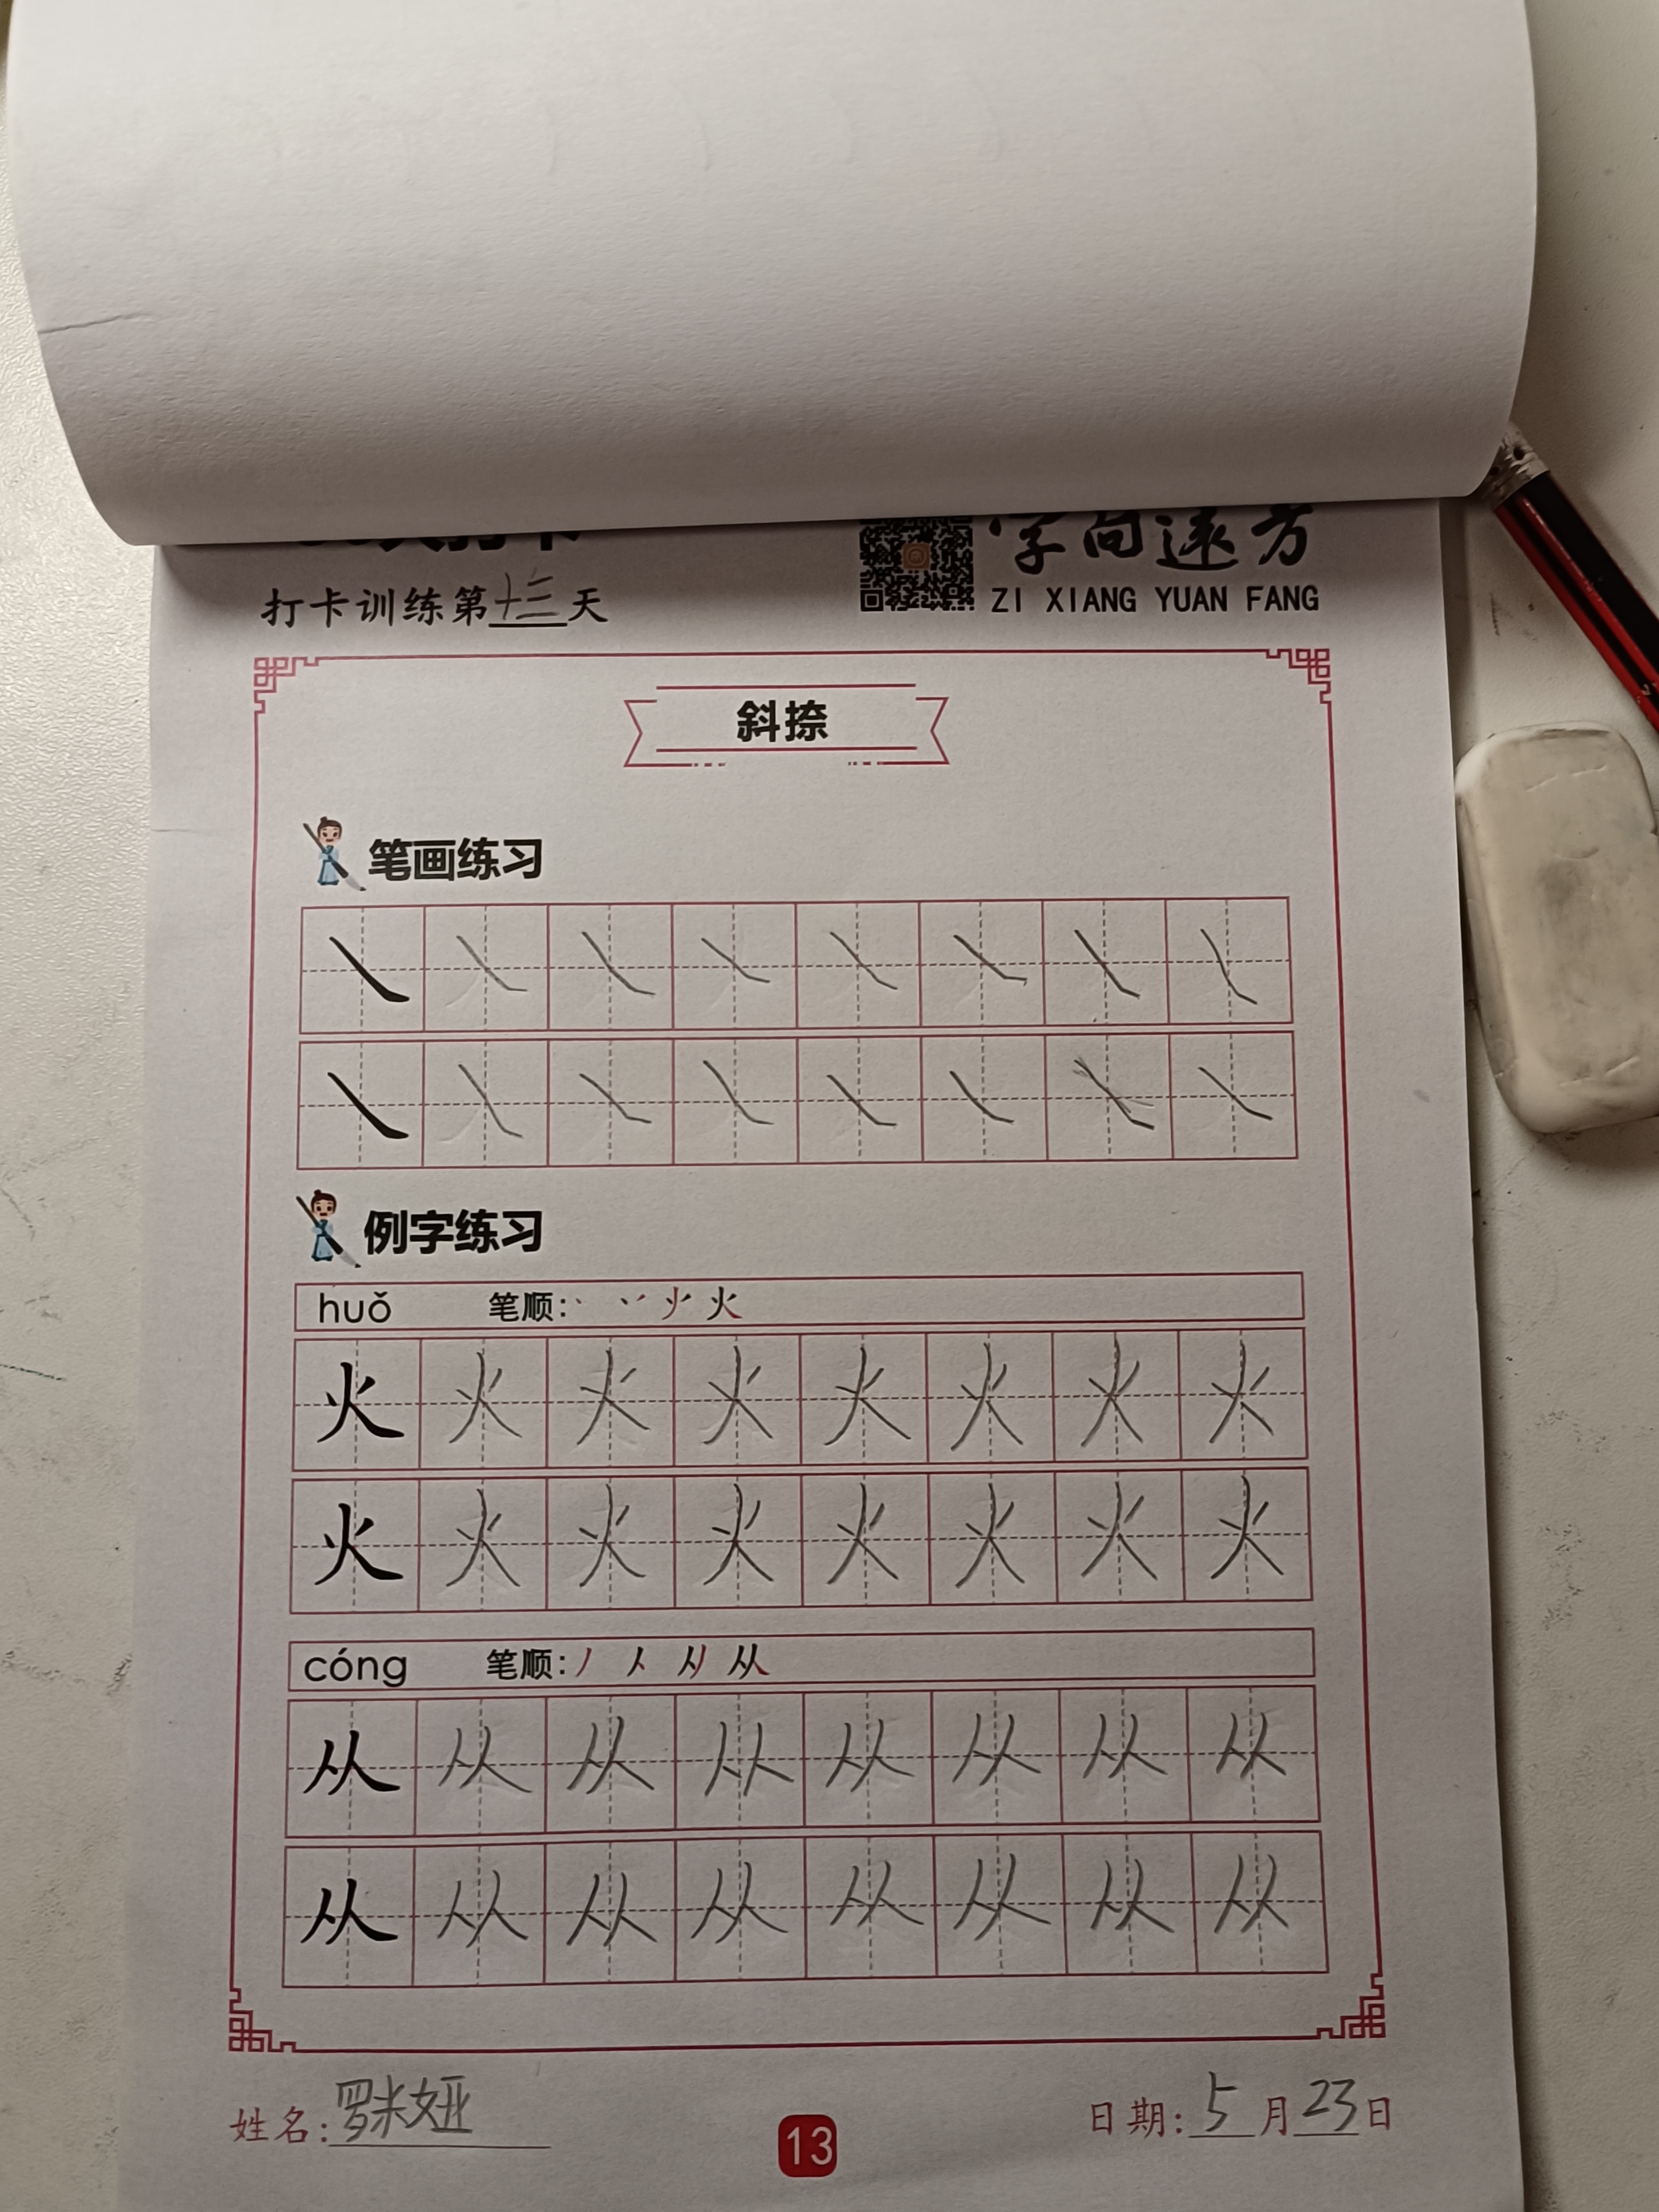 字向远方
ZI XIANG YUAN FANG
打卡训练第十三天
斜捺
笔画练习
例字练习
huǒ 笔顺:
火 火 火 火 火 火 火 火
火 火 火 火 火 火 火 火
cóng 笔顺: 丿 人 从
从 从 从 从 从 从 从 从
从 从 从 从 从 从 从 从
姓名: 罗米娅
13
日期: 5 月 23 日